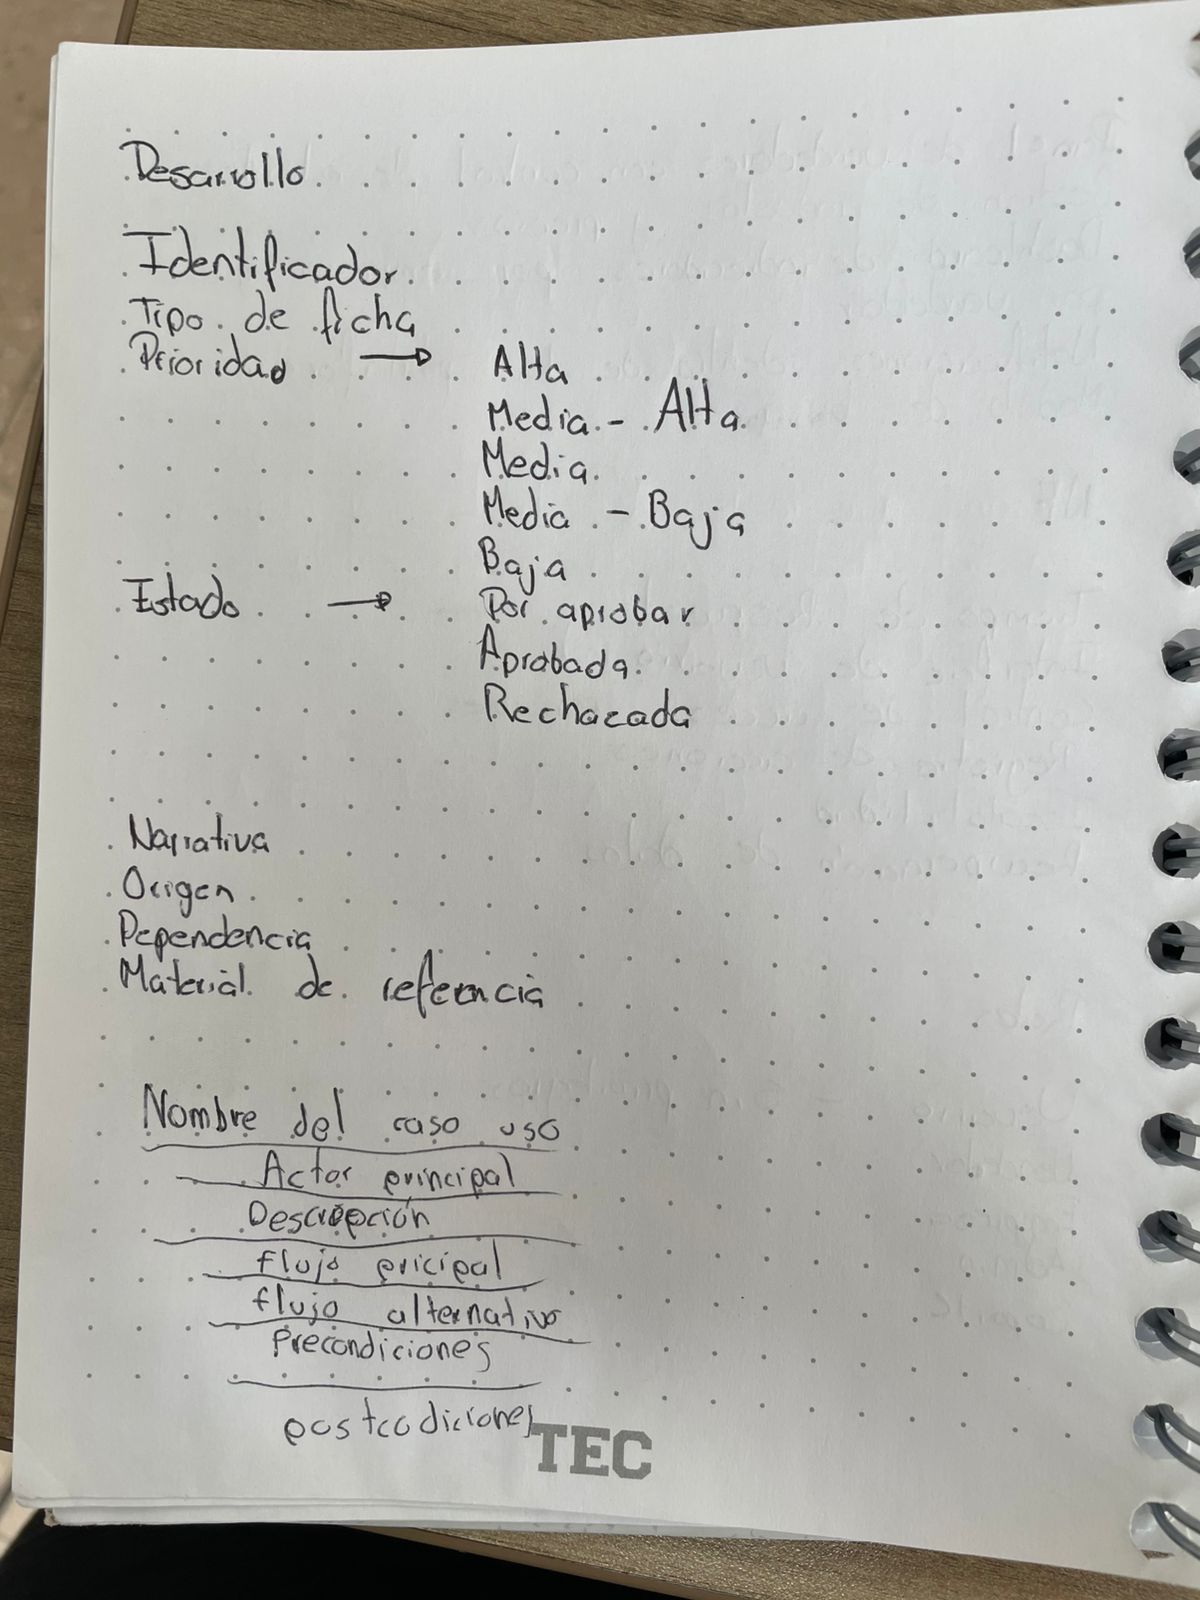 Desarrollo
Identificador
Tipo de ficha
Prioridad → Alta
Media - Alta
Media
Media - Baja
Baja
Estado → Por aprobar
Aprobada
Rechazada
Narrativa
Origen
Dependencia
Material de referencia
Nombre del caso uso
Actor principal
Descripción
flujo pricipal
flujo alternativo
Precondiciones
postcodiciones
TEC